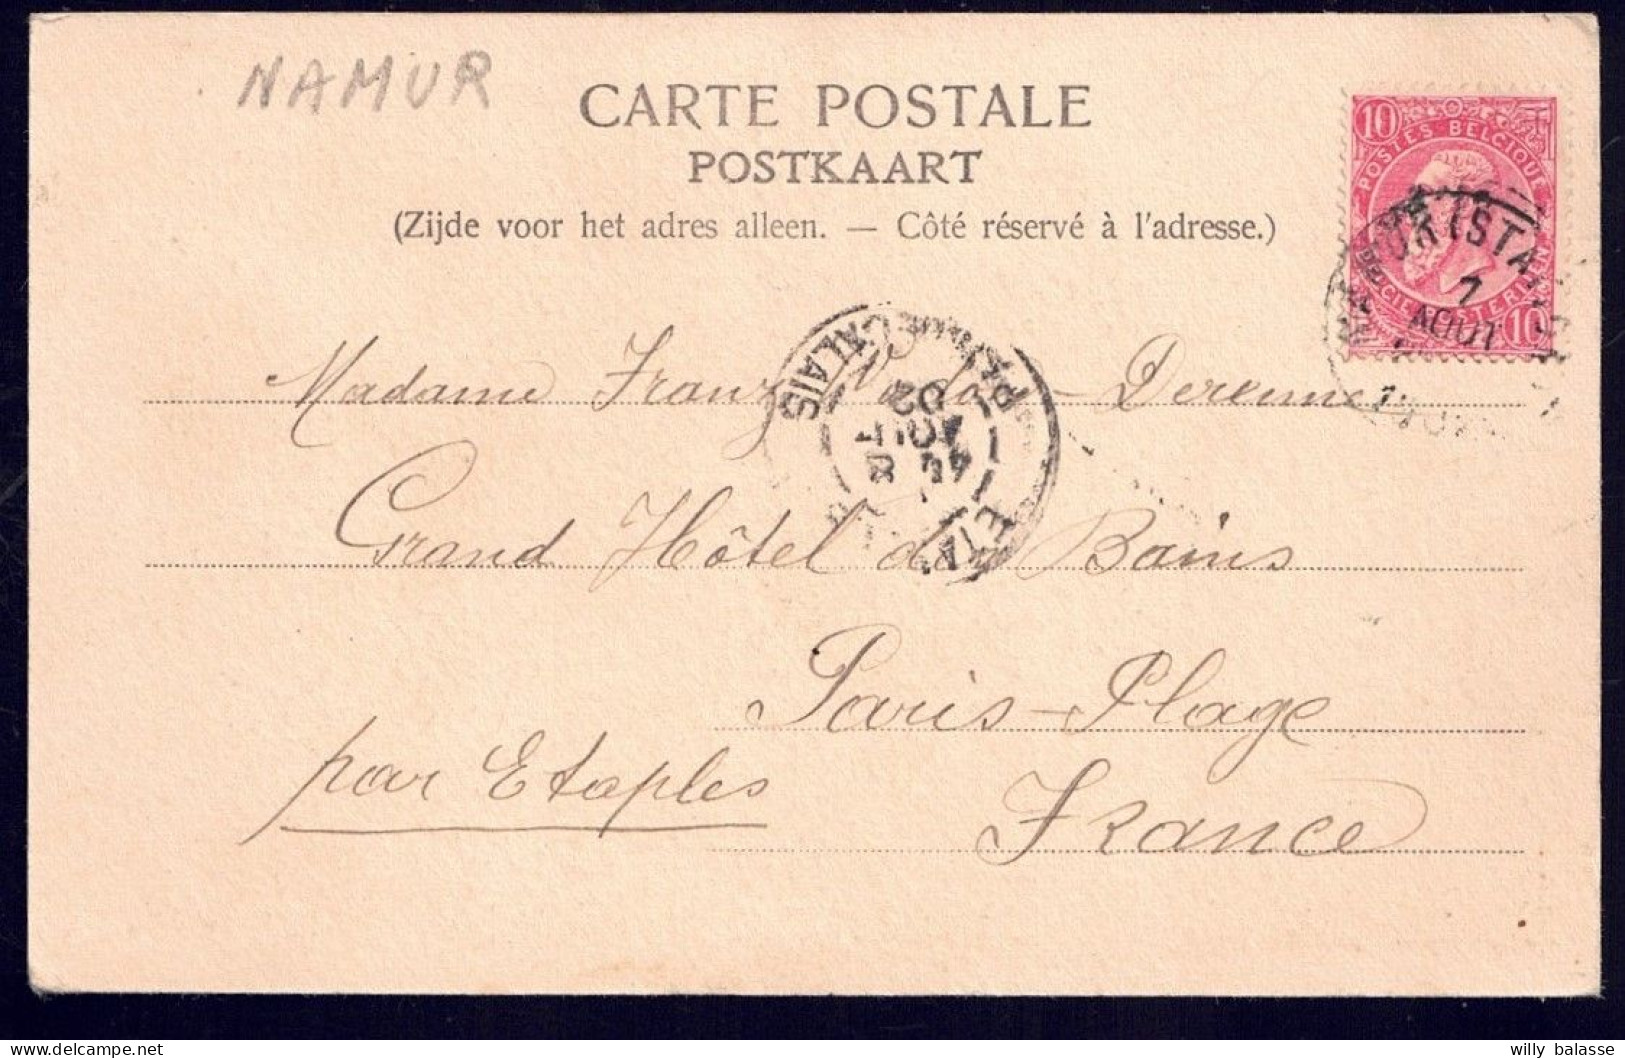 NAMUR
CARTE POSTALE
POSTKAART
(Zijde voor het adres alleen. — Côté réservé à l'adresse.)
10
POSTES BELGIQUE
10
7
AOUT
PAS DE CALAIS
ETA
4E
8
AOUT
02
Madame Franz - Derenne
Grand Hôtel des Bains
Paris-Plage
par Etaples
France
willy balasse